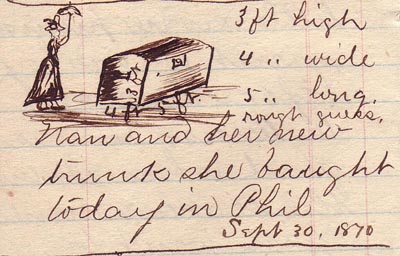 3 ft high
4 ,, wide
5 ,, long.
rough guess.
3 ft
4 ft. 5 ft.
Nan and her new
trunk she baught
today in Phil
Sept 30, 1870